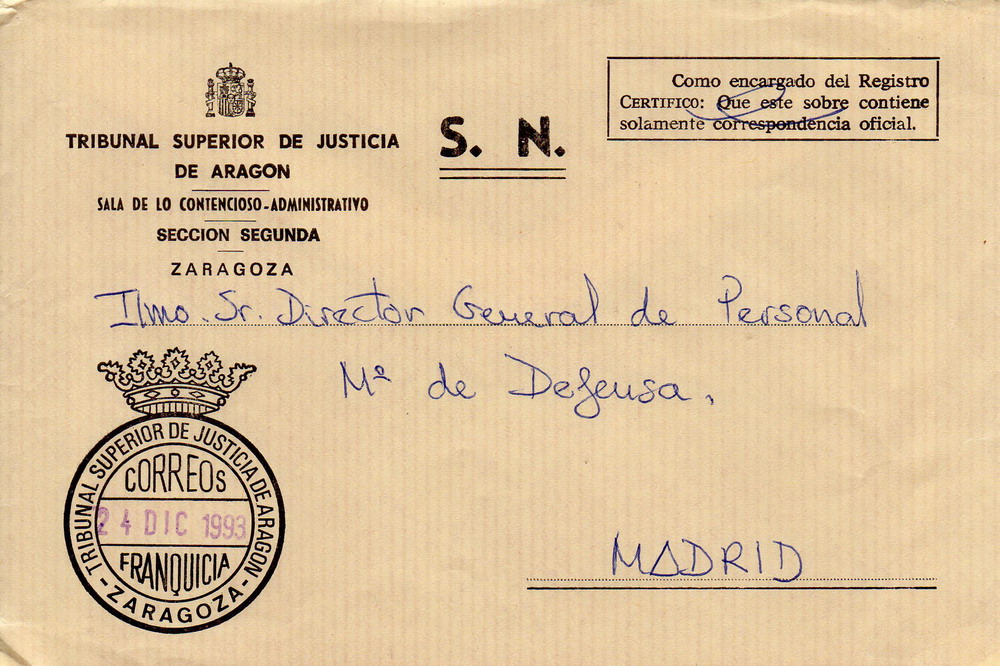 TRIBUNAL SUPERIOR DE JUSTICIA
DE ARAGON
SALA DE LO CONTENCIOSO-ADMINISTRATIVO
SECCION SEGUNDA
ZARAGOZA
S. N.
Como encargado del Registro
CERTIFICO: Que este sobre contiene
solamente correspondencia oficial.
Ilmo. Sr. Director General de Personal
Mº de Defensa.
MADRID
TRIBUNAL SUPERIOR DE JUSTICIA DE ARAGON
CORREOS
24 DIC 1993
FRANQUICIA
-ZARAGOZA-